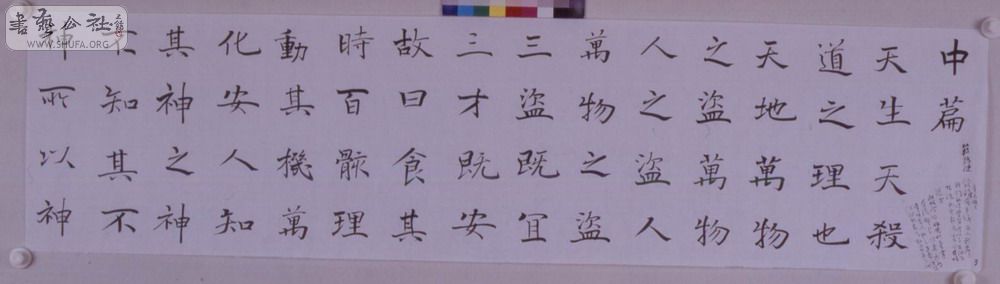 中篇
天生天殺
道之理也
天地萬物
之盜萬物
人之盜人
萬物之盜
三盜既宜
三才既安
故曰食其
時百骸理
動其機萬
化安人知
其神之神
不知其不
神所以神
書藝公社
WWW.SHUFA.ORG